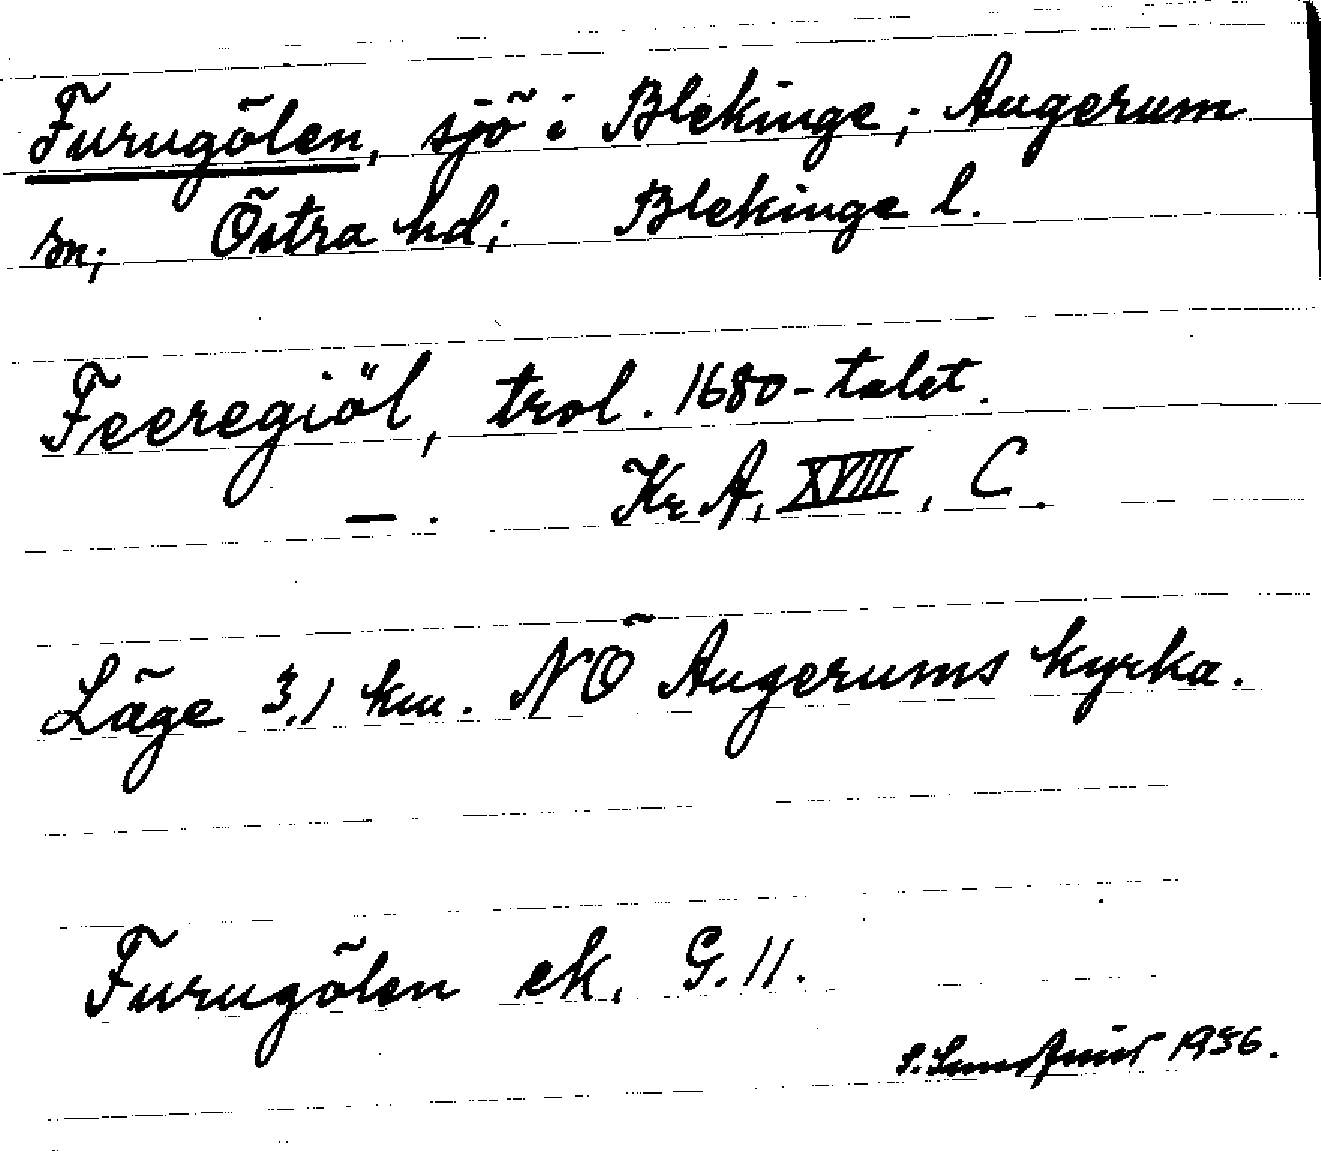 Furugölen, sjö i Blekinge; Augerum
sn; Östra hd; Blekinge l.
Feeregiöl, trol. 1680-talet.
— . Kr A, XVIII, C.
Läge 3,1 km. NÖ Augerums kyrka.
Furugölen ek. G. 11.
1936.